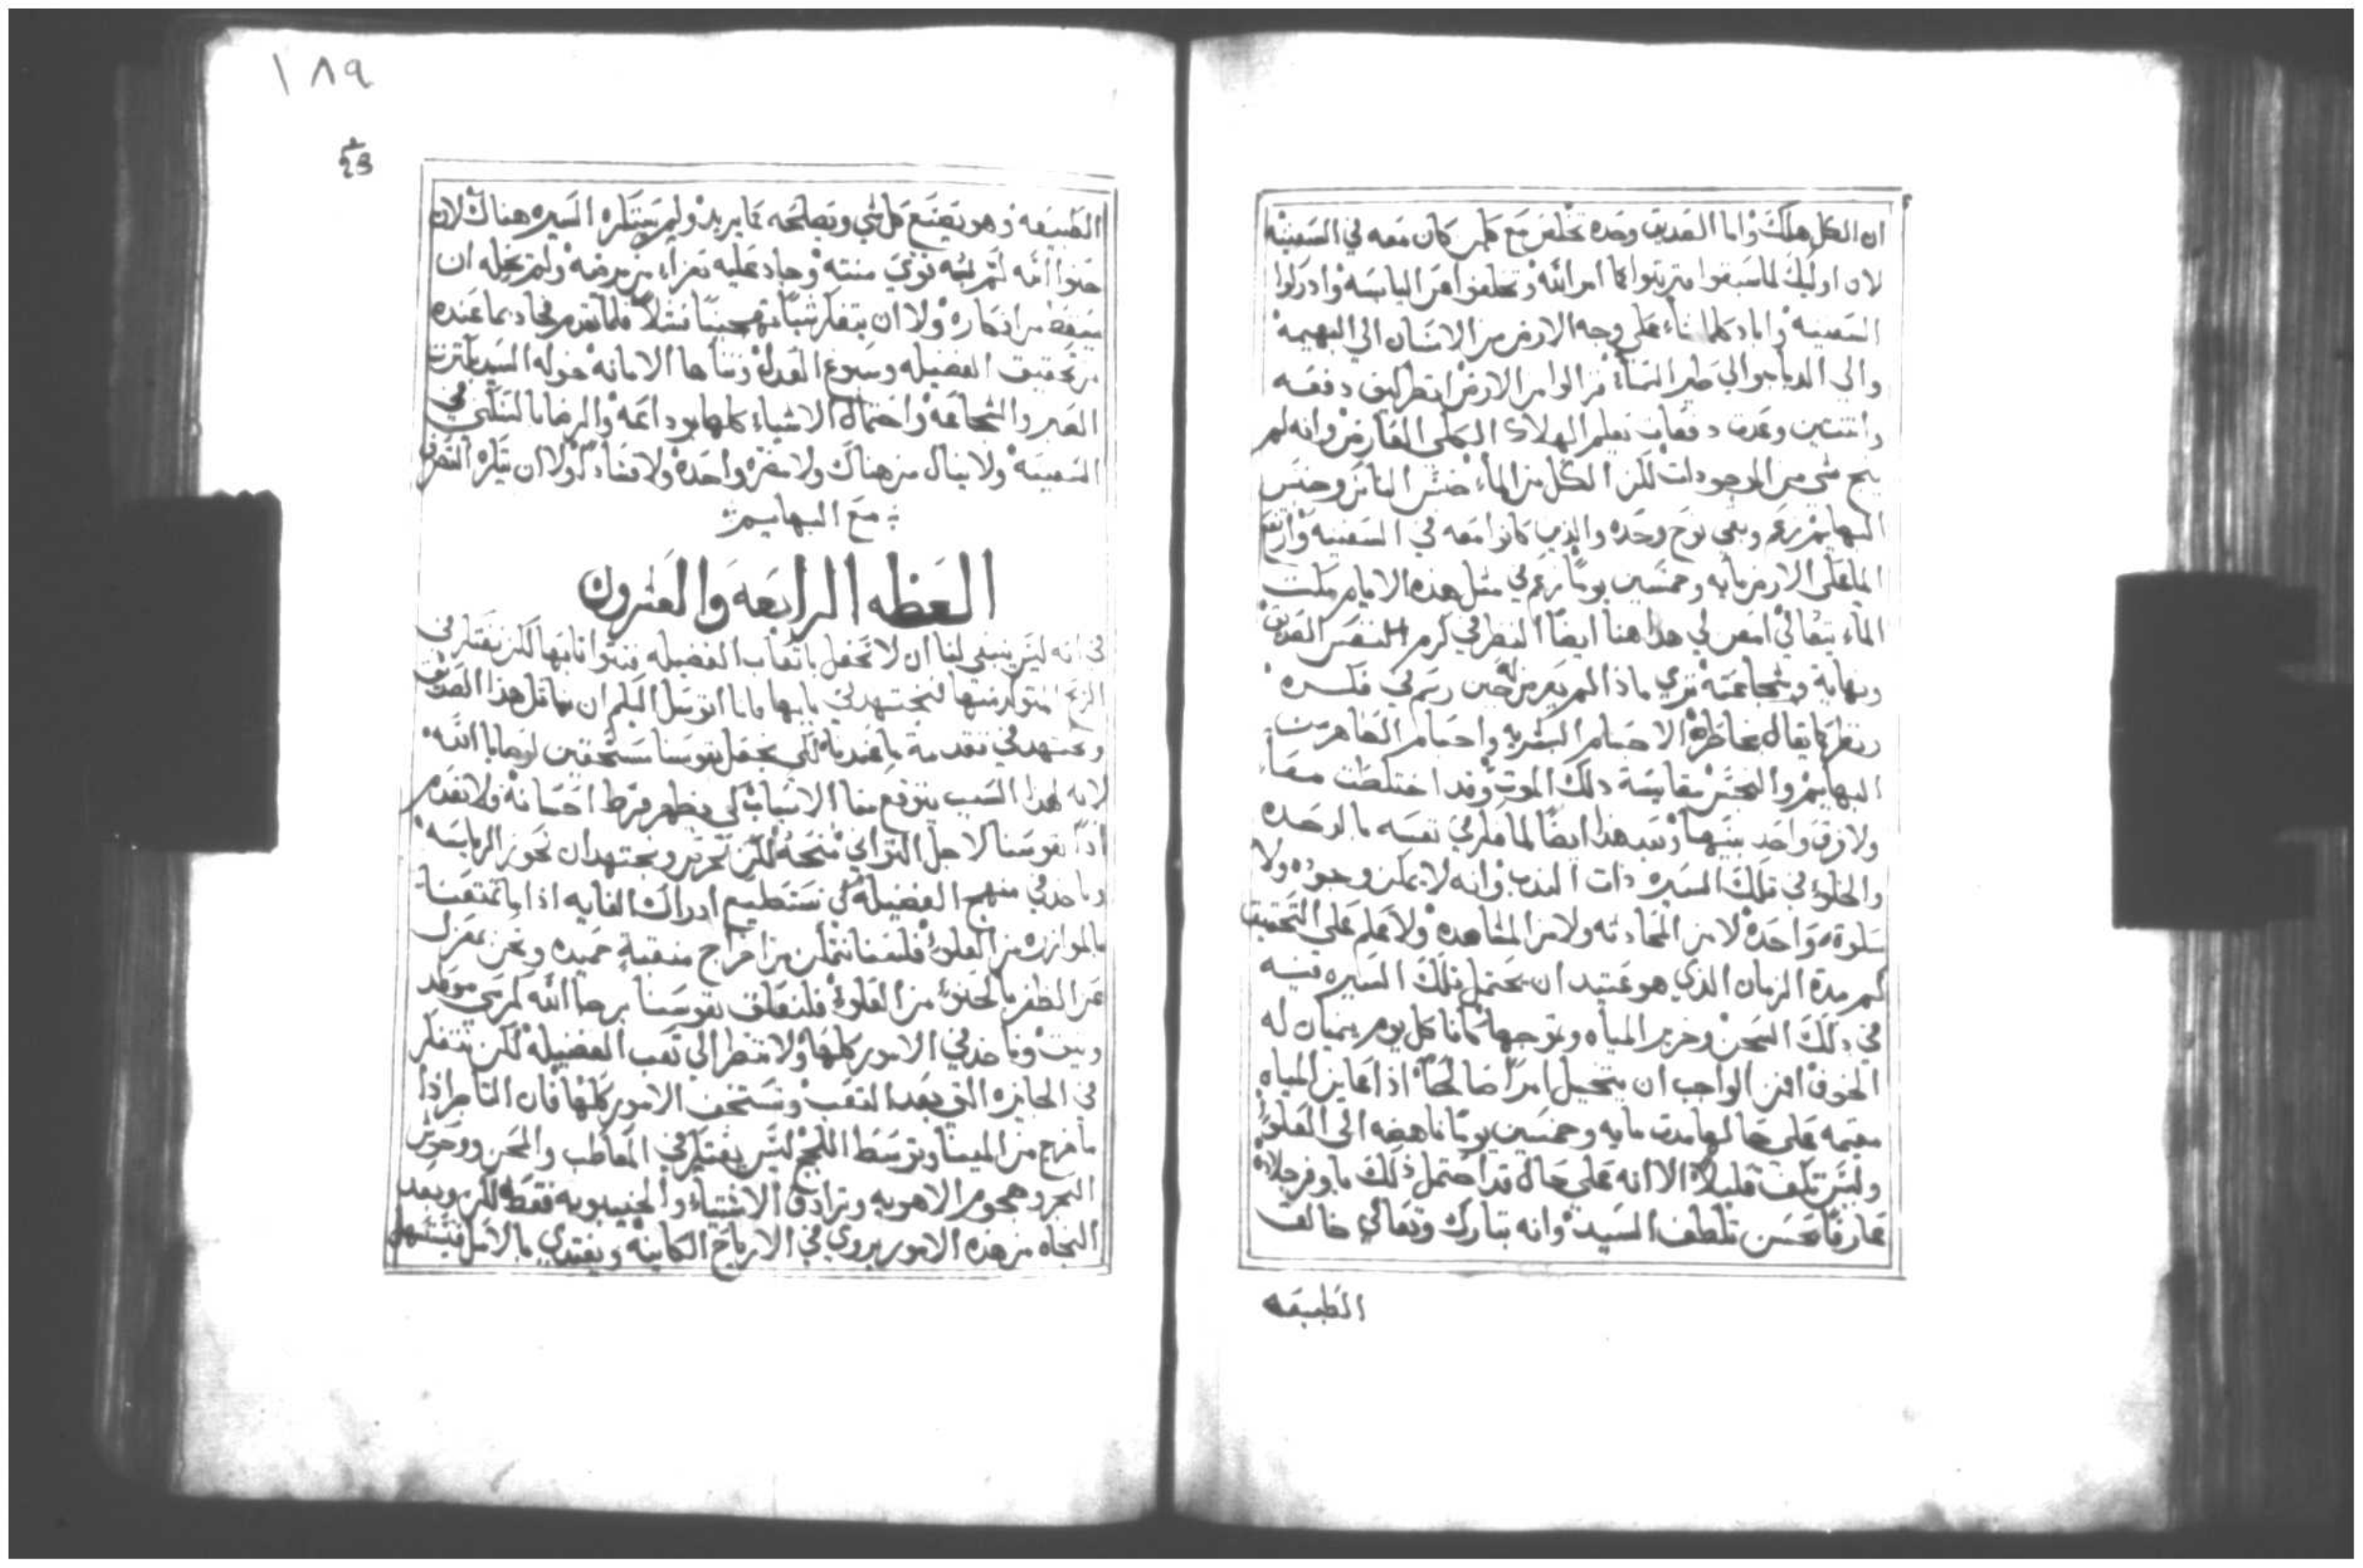 ان الكل هلك واما الصديق وحده تخلص مع كلمن كان معه في السفينه
لان اوليك لما سبقوا متربتوا بما امر الله وتخلصوا من اليابسه وادركوا
السفينه واباد كلما نشاء على وجه الارض من الانسان الي البهيمه
والي الدبابه والي طير السماء من الارض انظر كيف دفعه
واثنتين وعدت دفعات تعلم الهلاك الكلي العارض وانه لم
ينج شي من الموجودات لكن الكل من الماء جنس الناس وجنس
البهايم وبقي نوح وحده والذين كانوا معه في السفينه وارتفع
الما على الارض مايه وخمسين يوما زعم في مثل هذه الايام مكث
الماء متعالي هاهنا ايضا النظر في كرم النفس الصديق
وشجاعته تري ماذا لم يعرض له حين رسم في فكره
ونظر كما يقال بخاطره الاجسام البشريه واجسام الطاهرت
البهايم والنجس مقايسة ذلك الموت وقد اختلطت معا
ولا فرق واحد بينها وبعد هذا ايضا لما فكر في نفسه بالوحده
والخلو في تلك السيره ذات الندب وانه لا يمكن وجوده ولا
سلوة واحده لا من المحادثه ولا من المشاهده ولا علم على التحقيق
كم مدة الزمان الذي هو عتيد ان يحتمل تلك السيره فيه
في ذلك السجن وخرير المياه وتموجها كانا كل يوم ينميان له
الخوف افمن الواجب ان يتخيل امرا صالحا اذا عاين المياه
مقيمه على حالها مدت مايه وخمسين يوما ناهضه الى العلو
وليس تكف قليلا الا انه على حال قد احتمل ذلك باوفر جلاده
عارفا بحسن تلطف السيد وانه تبارك وتعالي خالق
الطبيعه
١٨٩
الطبيعه فهو يصنع كل شي ويصلحه بما يريد ولم يستكره السيره هناك لان
الله قوي منته وجاد عليه بعزاء من عنده ولم يخله ان
يسقط من افكاره ولا ان يتفكر شيا مثلا فلما تقدم فجاد بما عنده
من تحقيق الفضيله وسبوغ العدل الامانه خوله السيد
الصبر والشجاعه واحتمال الاشياء كلها بوداعه والرضا بالسكني في
السفينه ولا ينال من هناك ولا مضره واحده ولا فساد ولا ان يكره التصرف
مع البهايم
العظه الرابعه والعشرون
في انه ليس ينبغي لنا ان لا نحفل باتعاب الفضيله فنتوانا بها لكن نفتكر في
الربح المتولد منها لنجتهد في يا بابانا اتوسل اليكم ان نماثل هذا الصديق
ونجتهد في تقدمة ما عندنا لكي نجعل نفوسنا مستحقين لوصايا الله
لانه لهذا السبب يتوقع منا الاسباب لكي يظهر فرط احسانه ولا نعدم
اذا نفوسنا لاجل التواني منحه لكن نحرص ونجتهد ان نحوز الرياسه
وناخذ في منهج الفضيله كي نستطيع ادراك الغايه اذا ما تمتعنا
بالموازره من العلو فلسنا نتمكن من اخراج منقبة حميده ونحن بمعزل
عن الظفر بالحنو من العلو فلنعلق نفوسنا برجا الله
وناخذ في الامور كلها ولا ننظر الى تعب الفضيله لكن نتفكر
في الجايزه التي بعد التعب ونستخف الامور كلها فان التاجر اذا
ما خرج من المينا وتوسط اللجج ليس يفتكر في المعاطب والمحن ووحوش
البحر وهجوم الاهويه وترادف الاشتياء والخيبوبه فقط لكن وبعد
النجاه من هذه الامور يروي في الارباح الكاينه ويغتدي بالامل فيستسهل